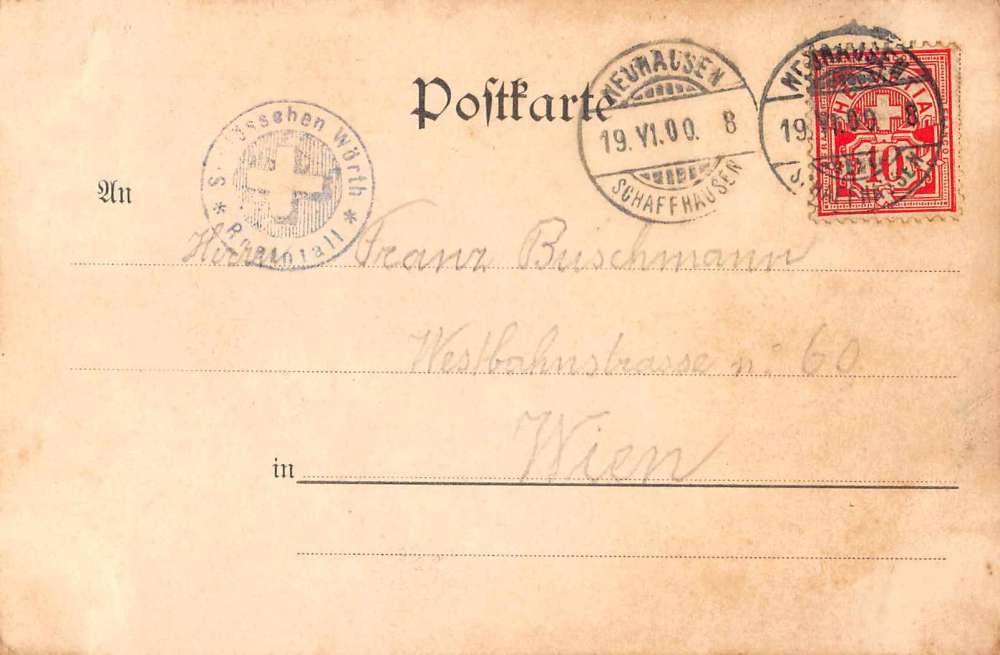 Postkarte
NEUHAUSEN
19. VI. 00. 8
SCHAFFHAUSEN
NEUHAUSEN
19. VI. 00. 8
SCHAFFHAUSEN
HELVETIA
10
Schlösschen Wörth
* Rheinfall *
An
Herrn Franz Buschmann
Westbahnstrasse no: 60
in Wien